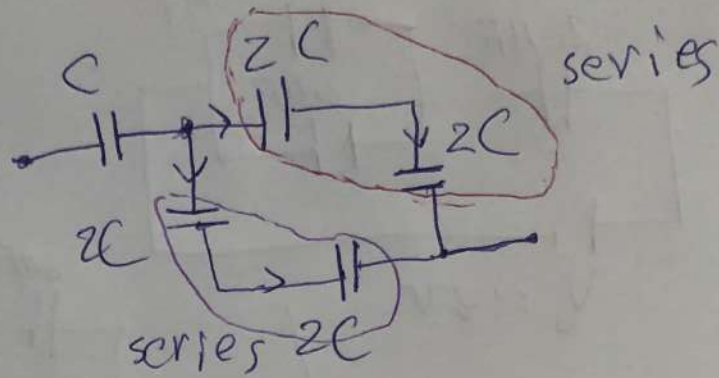 C
2C
series
2C
2C
series 2C